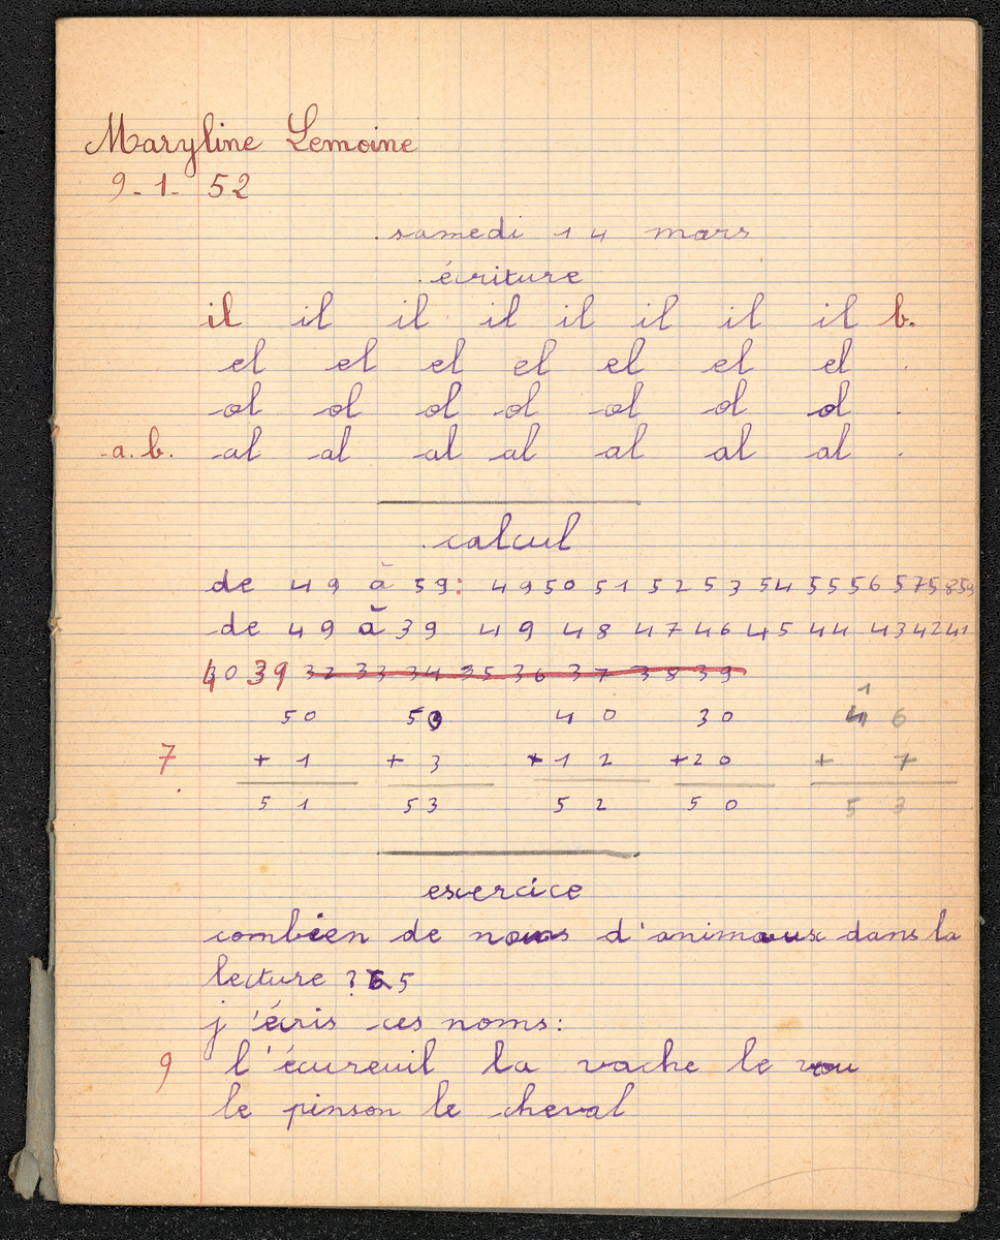 Maryline Lemoine
9-1-52
samedi 14 mars
écriture
il il il il il il il il b.
el el el el el el el .
ol ol ol ol ol ol ol .
a. b. al al al al al al al .
calcul
de 49 à 59: 49 50 51 52 53 54 55 56 57 58 59
de 49 à 39 49 48 47 46 45 44 43 42 41
40 39 32 33 34 35 36 37 38 39
1
50 50 40 30 4 6
7 + 1 + 3 + 12 + 20 + 7
51 53 52 50 53
exercice
combien de noms d'animaux dans la
lecture ? 5
j'écris ces noms:
9 l'écureuil la vache le
le pinson le cheval